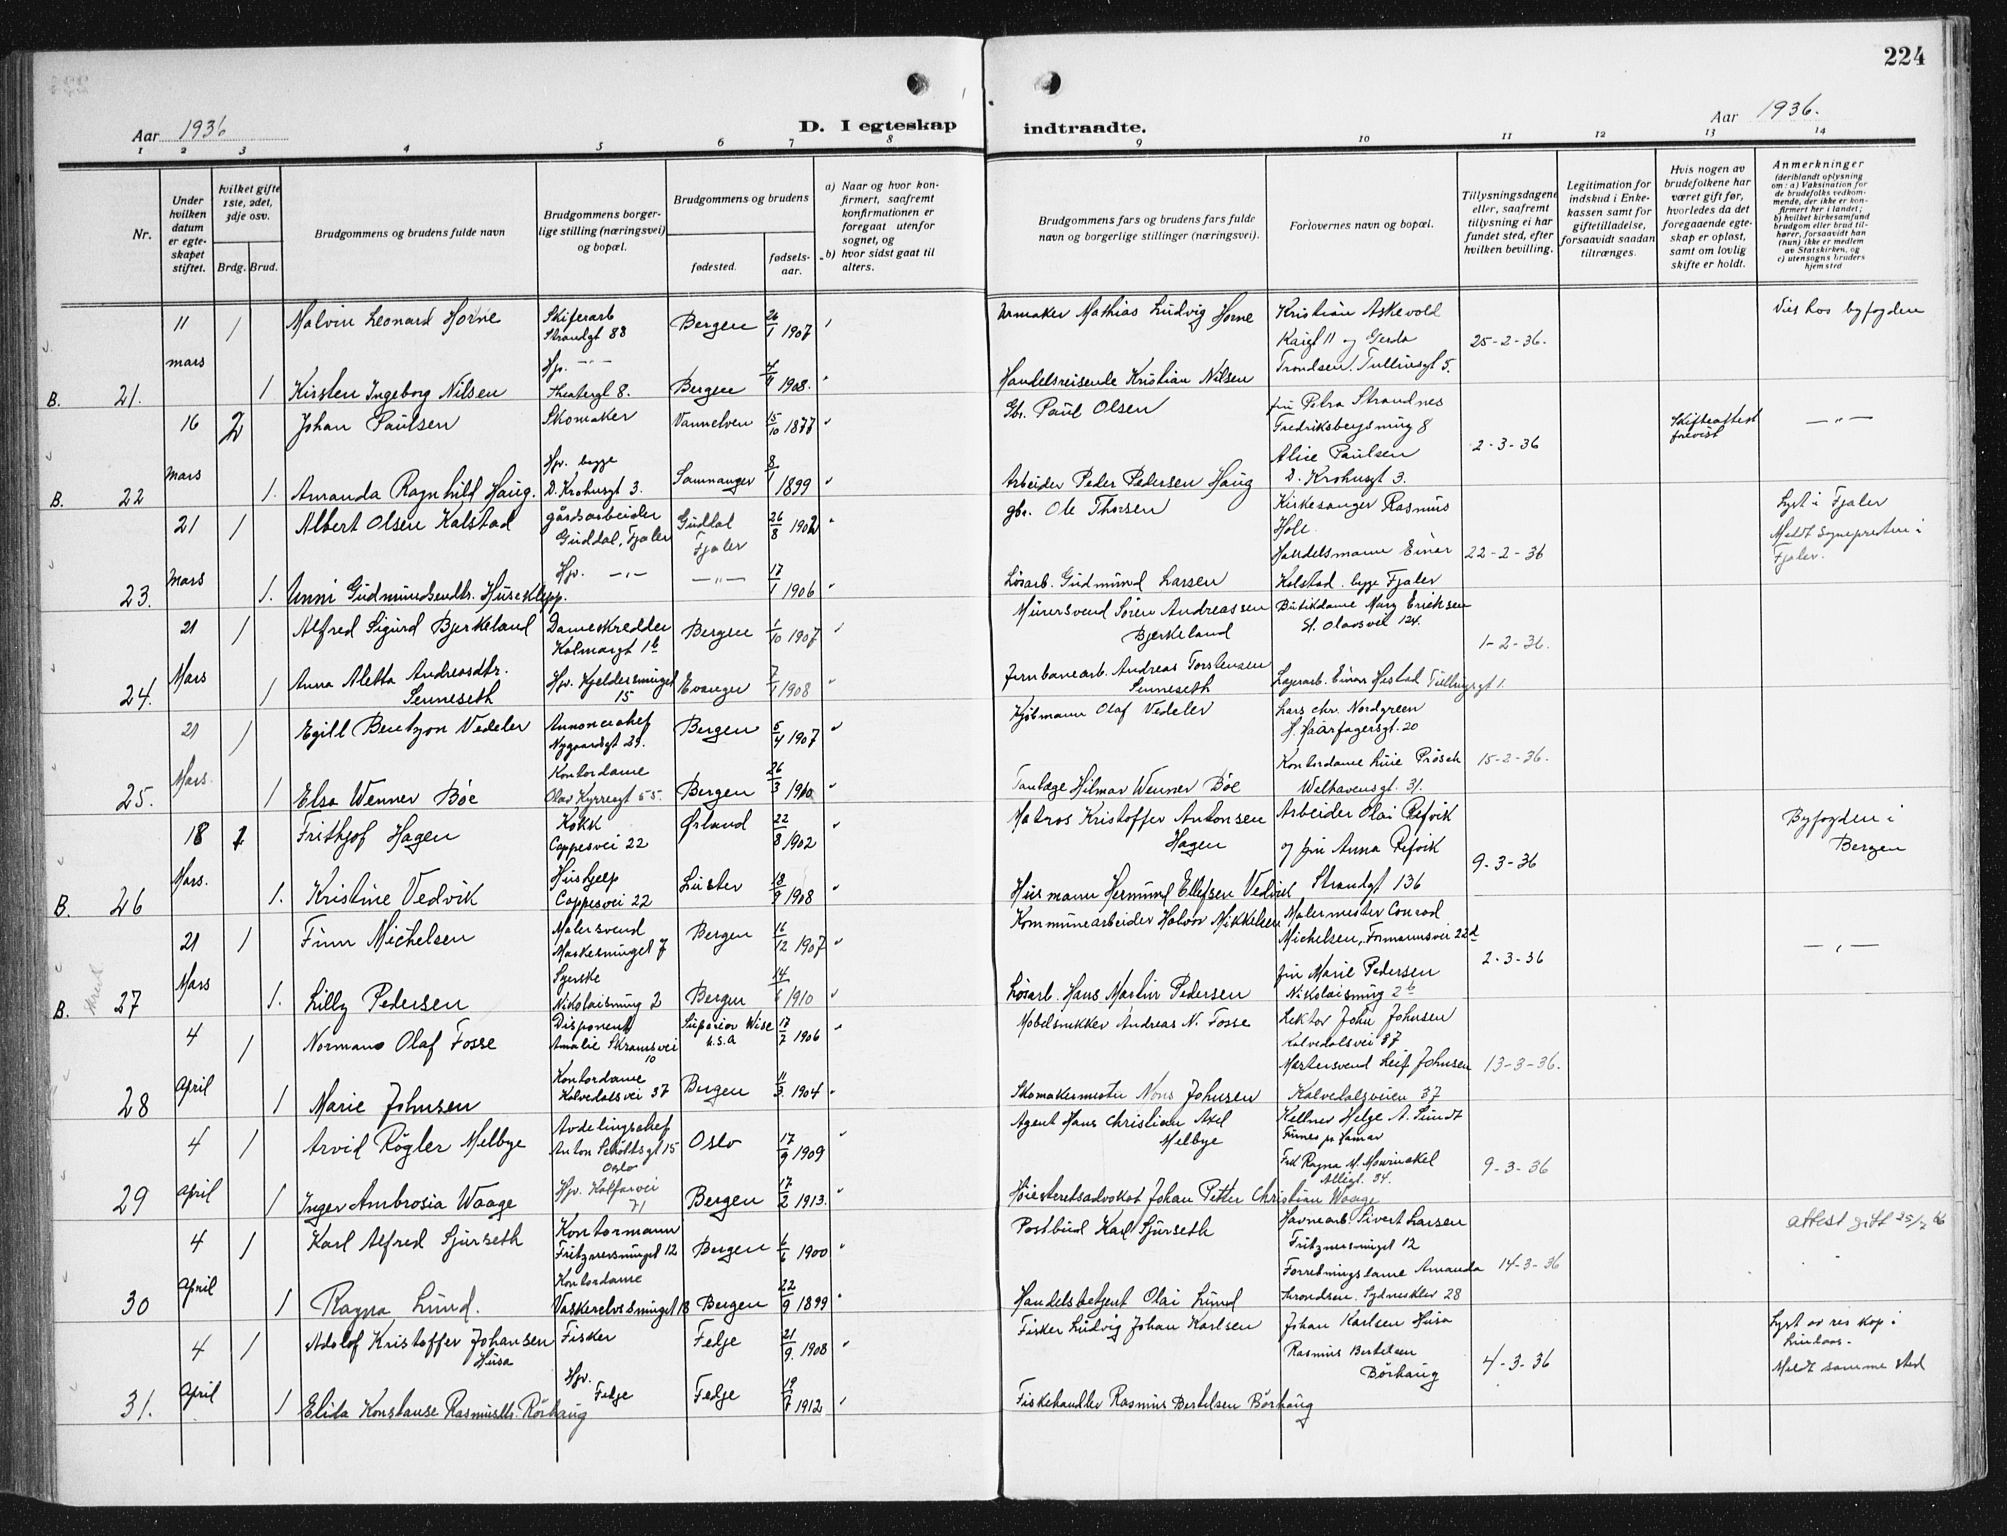 224
Aar 1936
D. I egteskap
indtraadte.
Aar 1936.
1 2 3 4 5 6 7 8 9 10 11 12 13 14
Nr.
Under hvilken datum er egteskapet stiftet.
hvilket gifte 1ste, 2det, 3dje osv.
Brdg. Brud.
Brudgommens og brudens fulde navn
Brudgommens borgerlige stilling (næringsvei) og bopæl.
Brudgommens og brudens
fødested.
fødselsaar.
a) Naar og hvor konfirmert, saafremt konfirmationen er foregaat utenfor sognet, og
b) hvor sidst gaat til alters.
Brudgommens fars og brudens fars fulde navn og borgerlige stillinger (næringsvei).
Forlovernes navn og bopæl.
Tillysningsdagene eller, saafremt tillysning ei har fundet sted, efter hvilken bevilling.
Legitimation for indskud i Enkekassen samt for giftetilladelse, forsaavidt saadan tiltrænges.
Hvis nogen av brudefolkene har været gift før, hvorledes da det foregaaende egteskap er opløst, samt om lovlig skifte er holdt.
Anmerkninger (deriblandt oplysning om: a) Vaksination for de brudefolks vedkommende, der ikke er konfirmert her i landet; b) hvilket kirkesamfund brudgom eller brud tilhører, forsaavidt han (hun) ikke er medlem av Statskirken, og c) utensogns bruders hjemsted
11 1 Malvin Leonard Horne Skiferarb Strandgt 88 Bergen 26/1 1907 Urmaker Mathias Ludvig Horne Kristian Askevold Kaigt 11 og Gerda Trondsen. Tulliusgt 5. 25-2-36. Vies hos byfogden
B. 21. mars 1 Kirsten Ingeborg Nilsen Hjv. -"- Theatergt 8. Bergen 1908. Handelsreisende Kristian Nilsen
16 2 Johan Paulsen Skomaker Vannelven 15/10 1877 Gbr. Paul Olsen fru Petra Strandnes Fredriksbergsmug 8 2-3-36 Skifteattest frevist -"-
B. 22 mars 1. Amanda Ragnhild Haug. Hjv. begge D. Krohnsgt 3. Samnanger 8/1 1899 Arbeider Peder Pedersen Haug Alice Paulsen D. Krohnsgt 3.
21 1 Albert Olsen Kalstad gårdsarbeider Guddal, Fjaler Guddal Fjaler 26/8 1902 gbr. Ole Thorsen Kirkesanger Rasmus Hole. 22-2-36 Lyst i Fjaler Meldt Sogneprosten i Fjaler.
23. mars 1. Unni Gudmundsendtr. Huseklepp. Hjv. -"- -"- 17/1 1906 Løsarb. Gudmund Larsen Handelsmann Einar Kalstad. begge Fjaler
21 1 Alfred Sigurd Bjerkeland Dameskredder Kalmargt 1b Bergen 1/10 1907 Murersvend Søren Andreassen Bjerkeland Butikdame Mary Eriksen St. Olaosvei 124. 1-2-36.
24. Mars 1 Anna Aletta Andreasdtr. Senneseth Hjv. Kjeldersmuget 15 Evanger 7/1 1908 Jernbanearb. Andreas Torstensen Senneseth Lagerarb. Einar Hestad Tullinsgt 1.
21 1 Egill Bentzon Vedeler Annoncechef Nygaardsgt 29. Bergen 5/4 1907 Kjøbmann Olaf Vedeler Lars Chr. Nordgreen H. Haarfagersgt. 20 15-2-36.
25. Mars. 1 Elsa Wenner Bøe Kontordame Olav Kyrresgt 55. Bergen 26/3 1910 Tanlæge Hilmar Wenner Bøe Kontordame Prösch Welhavensgt. 31.
18 1 Frithjof Hagen Kokk Coppesvei 22 Ørland 22/8 1902 Matros Kristoffer Antonsen Hagen Arbeider Olai Refvik og fru Anna Refvik Strandgt 136 9-3-36 Byfogden i Bergen
B. 26 Mars. 1. Kristine Vedvik Hushjelp Coppesvei 22 Luster 18/9 1908 Husmann Hermund Ellefsen Vedvik
21 1 Finn Michelsen Malersvend Maskesmuget 7 Bergen 16/12 1907 Kommunearbeider Halvor Mikkelsen Malermester Conrad Michelsen, Formannsvei 22d 2-3-36 -"-
B. 27 Mars 1. Lilly Pedersen Syerske Nikolaismug 2 Bergen 1910 Løsarb. Hans Martin Pedersen fru Marie Pedersen Nikolaismug 2b
4 1 Norman Olaf Fosse Disponent Amalie Skramsvei 10 Superior Wisc U.S.A 1906 Møbelsnikker Andreas N. Fosse Lektor John Johnsen Kalvedalsvei 37 13-3-36.
28 April 1 Marie Johnsen Kontordame Kalvedalsvei 37 Bergen 11/3 1904 Skomakermester Johnsen Leif Johnsen Kalvedalsveien 37
4 1 Arvid Røgler Melbye Avdelingschef Anton Schøttsgt 15 Oslo Oslo 17/9 1909 Agent Hans Christian Axel Melbye Kellner Helge A. Sundt Furnes pr Hamar 9-3-36
29 April 1 Inger Ambrosia Waage Hjv. Kalfarvei 71 Bergen 17/2 1913. Høiesteretsadvokat Johan Petter Christian Waage Frk Ragna M. Mowinckel Allégt. 34.
4 1 Karl Alfred Sjurseth Kontormann Fritznersmuget 12 Bergen 6/6 1900 Postbud Karl Sjurseth Havnearb. Sivert Larsen Fritznersmuget 12 14-3-36 attest gitt
30 April 1 Ragna Lund. Kontordame Vaskerelvsmuget 18 Bergen 22/9 1899 Handelsbetjent Olai Lund Forretningsdame Amanda Throndsen. Sydneskleiv 28
4 1 Adolof Kristoffer Johansen Husa Fisker Fedje 21/9. 1908 Fisker Ludvig Johan Karlsen Johan Karlsen Husa 4-3-36 Lyst av res kap i Lindaas. Meldt samme sted
31. April 1 Elida Konstanse Rasmusdtr. Rørhaug Hjv. Fedje Fedje 19/7 1912 Fiskehandler Rasmus Bertelsen Børhaug Rasmus Bertelsen Børhaug